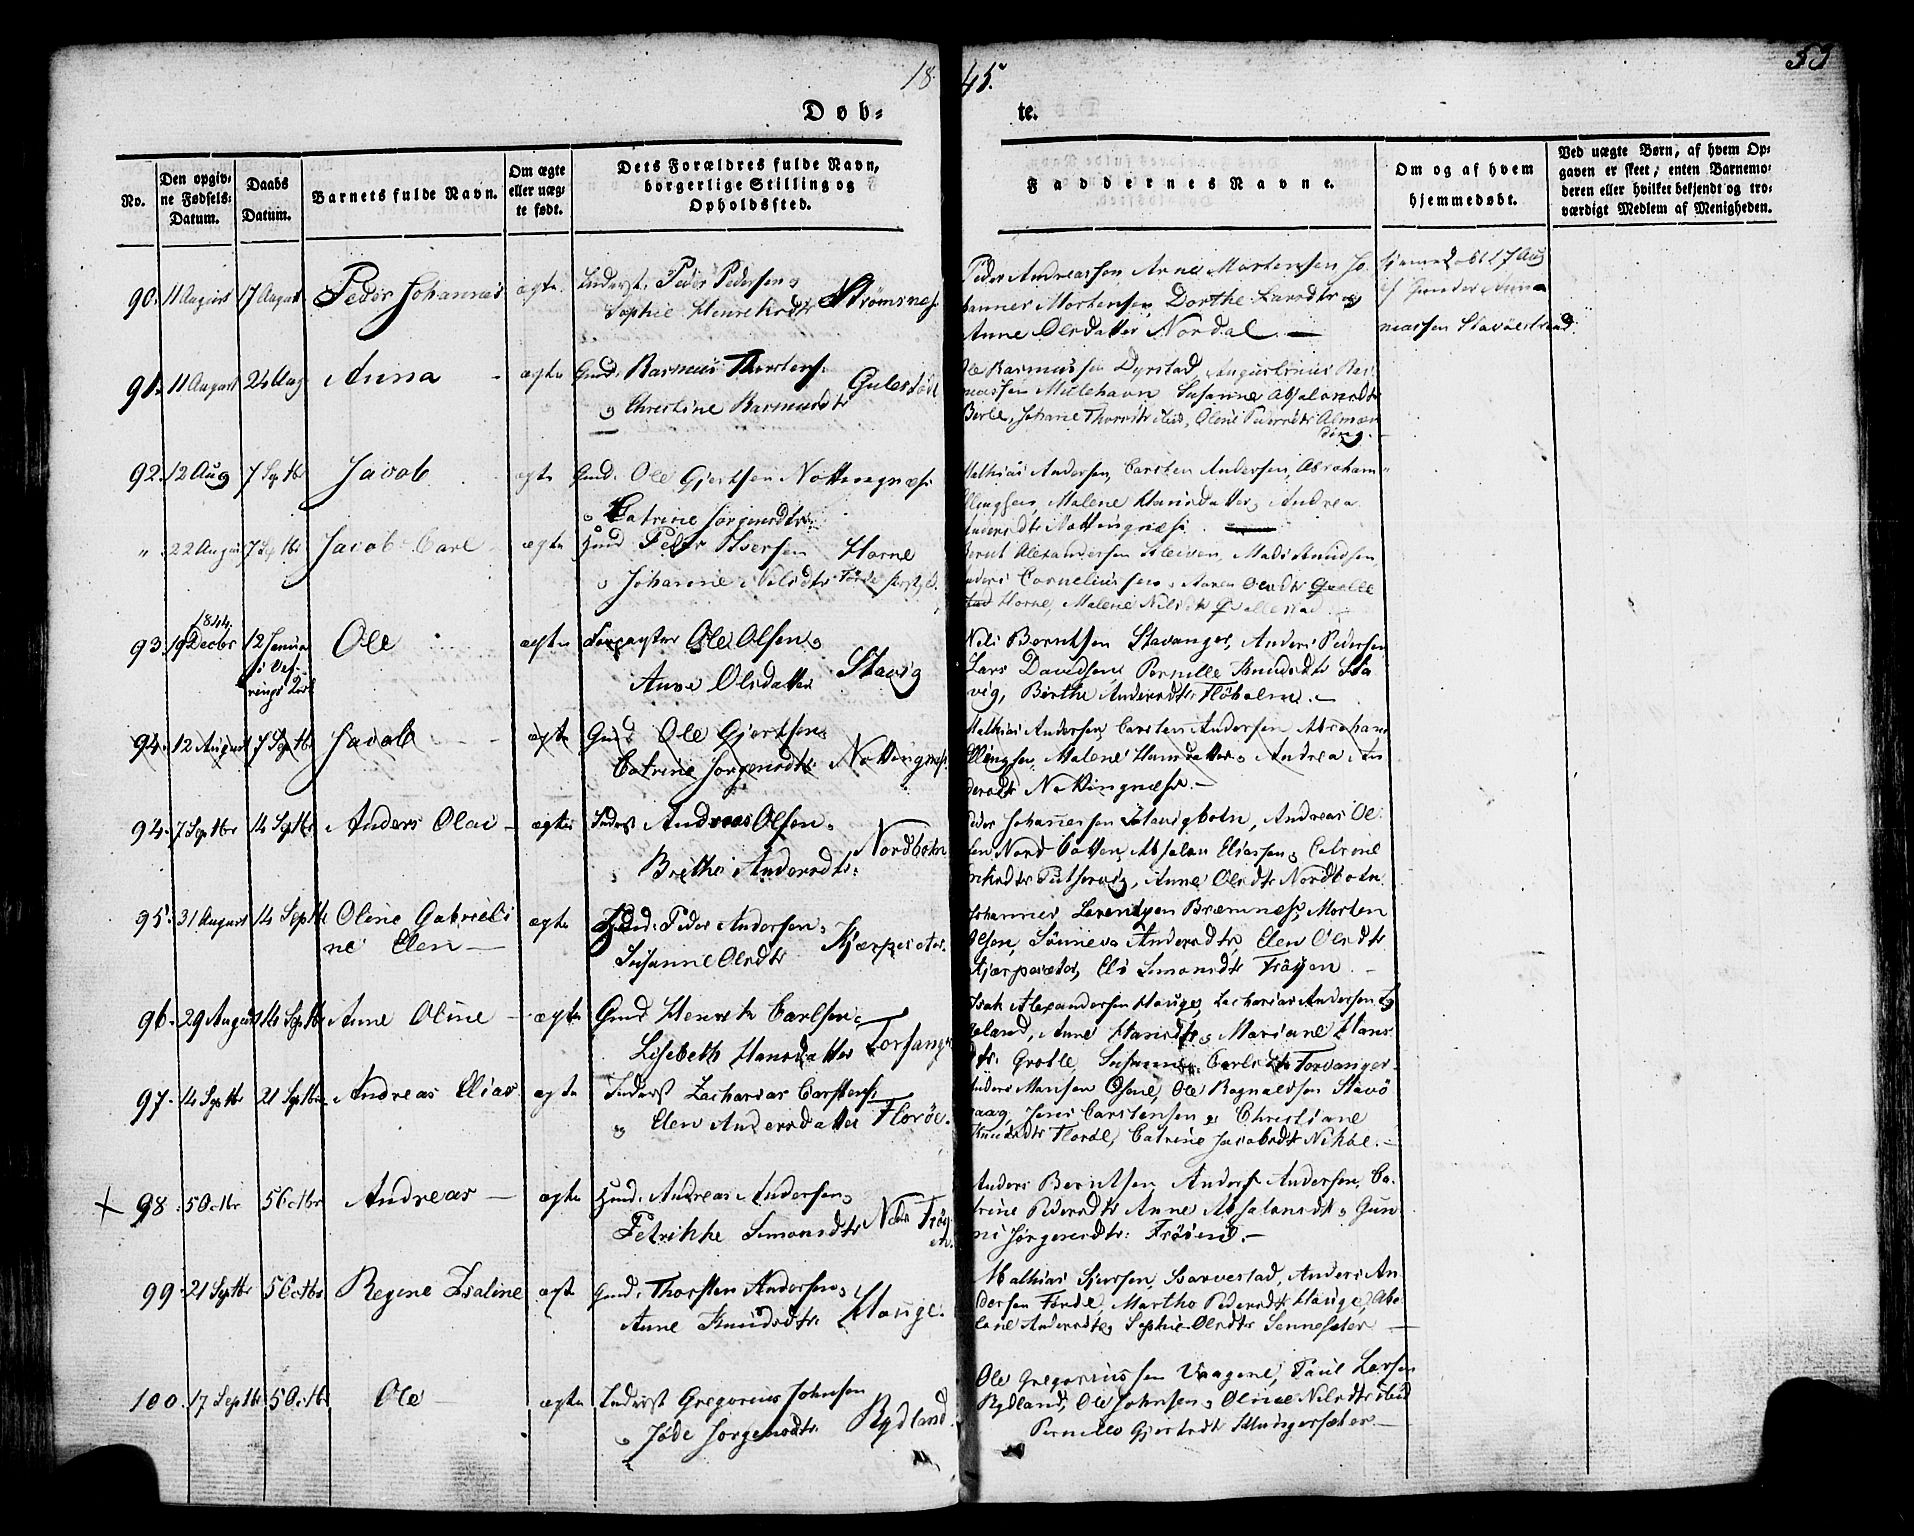 1845.
53
Døb-
te.
No.
Den opgiv-
ne Fødsels-
Datum.
Daabs
Datum.
Barnets fulde Navn.
Om ægte
eller uæg-
te født.
Dets Forældres fulde Navn,
borgerlige Stilling og
Opholdssted.
Faddernes Navne.
Om og af hvem
hjemmedøbt.
Ved uægte Børn, af hvem Op-
gaven er skeet; enten Barnemo-
deren eller hvilket bekjendt og tro-
værdigt Medlem af Menigheden.
90. 11 August 17 August Peder Johannes ægte Inderst. Peder Pedersen
Sophie Henrichsdtr Strømsnes
Peder Andreassen, Arne Mortensen Jo
hannes Mortensen, Dorthe Larsdtr og
Anne Olsdatter Nordal. —
91. 11 August 24 Aug Anna ægte Gmd. Rasmus Thorstens.
Christine Rasmusdtr
Ole Rasmussen Dyrstad, Augustinus Ras
massen Mulehavn Susanne Absalonsdtr
Berle, Johane Thorsdtr ibid, Oline
92. 12 Aug 7 Septbr Jacob ægte Gmd. Ole Gjertsen Nottingnæs.
Catrine Jørgensdtr
Mathias Andersen, Carsten Andersen, Abraham
Ellingsen, Malene Hansdatter, Andrea
Andersdtr Nottingnæs.
" 22 August 7 Septbr Jacob Carl ægte Huusmd Peder Iversen Horne
Johanne Nilsdtr Førde
Bernt Alexandersen Kleiven, Mads Knudsen,
Anders Corneliussen, Maren Olsdtr Qvalle
stad Horne, Malene Nilsdtr Qvallestad.
1844.
93. 19 Decbr 12 Januar Ole ægte Ole Olsen
Anne Olsdatter Stavig
Nils Berntsen Stavanger, Anders Pedersen
Lars Davidsen, Pernille Knudsdtr Sta
vig, Berthe Andersdtr Fløholm. —
94. 12 August 7 Septbr Jacob ægte Gmd Ole Gjertsen
Catrine Jørgensdtr Nottingnæs.
Mathias Andersen, Carsten Andersen, Abraham
Ellingsen, Malene Hansdatter, Andrea An
dersdtr Nottingnæs. —
94. 7 Septbr 14 Septbr Anders Olai — ægte Inderst Andreas Olsen
Brithe Andersdtr. Nordbotn
Peder Johannessen Stavigbotn, Andreas Ol
sen Nordbotten, Absalon Eliassen, Catrine
Anne Olsdtr Nordbotn.
95. 31 August 14 Septbr Oline Gabrieli
ne Elen — ægte Huusmd. Peder Andersen
Susanne Olsdtr Kjærpesæter.
Johannes Lorentzen Bremnes, Morten
Olsen, Sønneva Andersdtr, Elen Olsdtr
Kjærpesæter, Eli Simonsdtr Frøyen. —
96. 29 August 14 Septbr Anne Oline — ægte Gmd Henrik Carlsen
Lisebeth Hansdatter
Isak Alexandersen Hauge, Zacharias Andersen
Anne Hansdtr, Mariane Hans
dtr. Grotle, Susanne Carlsdtr
97. 14 Septbr 21 Septbr Andreas Elias ægte Inderst Zacharias Carstens.
Elen Andersdatter Florøe.
Anders Monsen Osne, Ole Ragnaldsen Stavø
vaag, Jens Carstensen Christiane
Knudsdtr Florøe, Catrine Jacobsdtr Nikbe. —
+ 98. 5 Octbr 5 Octbr Andreas — ægte Huusmd. Andreas Andersen
Petrikke Simonsdtr Nedre Frøy
en.
Anders Berntsen Anders Andersen, Ca
trine Pedersdtr Anne Absalonsdtr, Gun
ni Jørgensdtr. Frøien. —
99. 21 Septbr 5 Octbr Regine Isaline ægte Gmd. Thorsten Andersen
Anne Knudsdtr. Hauge.
Mathias Sjursen, Isarvestad, Anders An
dersen Førde, Marthe Pedersdtr Hauge, Abe
lone Andersdtr, Sophie Olsdtr Sennesæter —
100. 17 Septbr 5 Octbr Ole — ægte Inderst Gregorius Johnsen
Jøde Jørgensdtr. Rydland.
Ole Gregoriussen Vaagene, Paul Larsen
Rydland, Ole Johnsen, Oline Nilsdtr ibid
Pernille Gjertsdtr